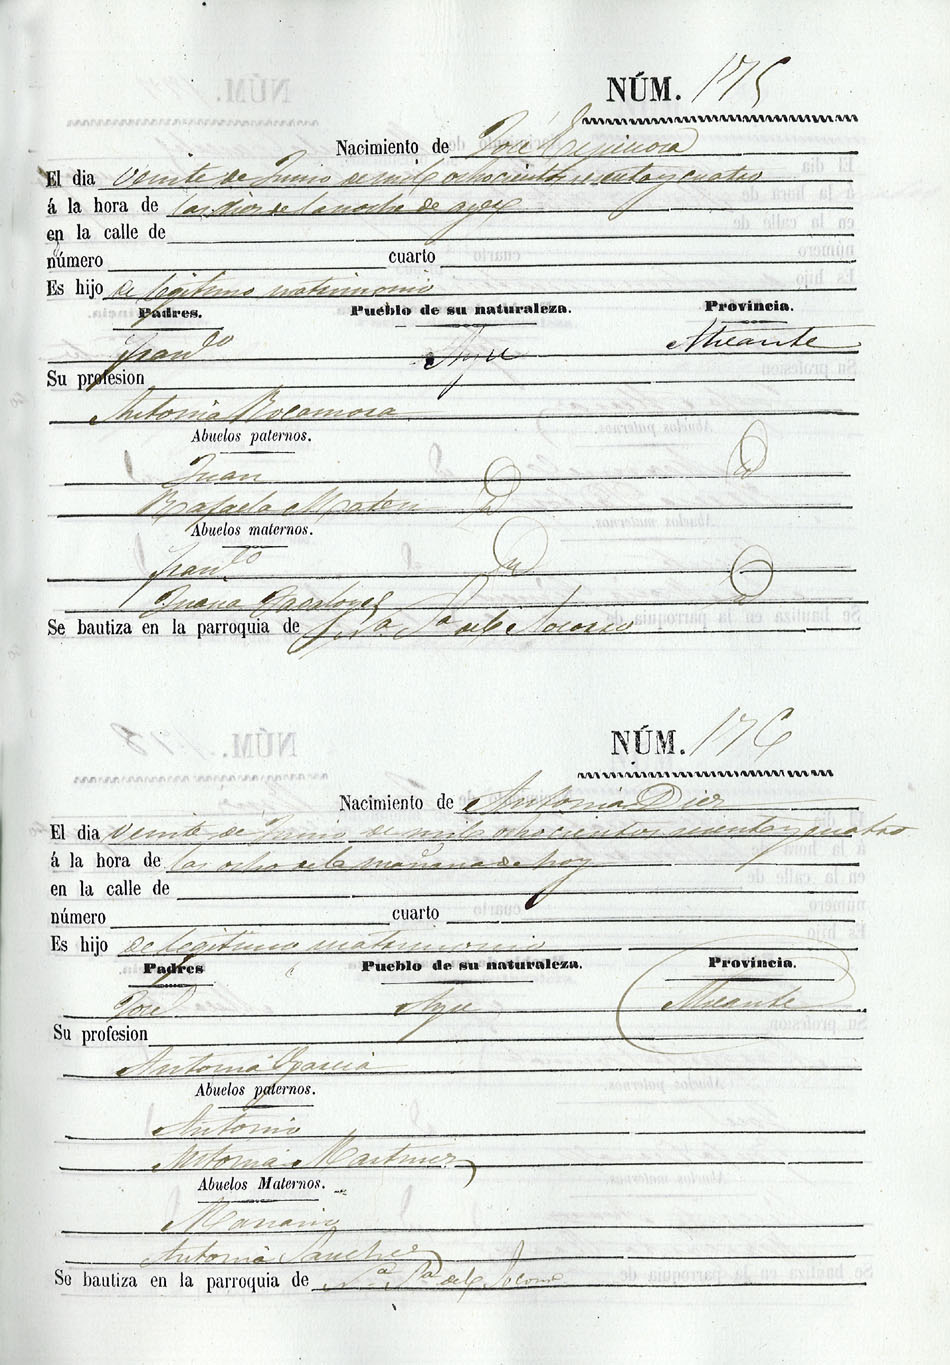 NÚM. 175
Nacimiento de José Espinosa
El dia Veinte de Junio de mil ochocientos sesenta y cuatro
á la hora de las diez de la noche de ayer
en la calle de
número cuarto
Es hijo de legitimo matrimonio
Padres. Pueblo de su naturaleza. Provincia.
Franco Aspe Alicante
Su profesion
Antonia Rocamora
Abuelos paternos.
Juan
Rafaela
Abuelos maternos.
Franco
Juana
Se bautiza en la parroquia de Sa del Socorro
NÚM. 176
Nacimiento de Antonia Diez
El dia Veinte de Junio de mil ochocientos sesenta y cuatro
á la hora de las ocho de la mañana de hoy
en la calle de
número cuarto
Es hijo de legitimo matrimonio
Padres Pueblo de su naturaleza. Provincia.
José Aspe Alicante
Su profesion
Antonia Garcia
Abuelos paternos.
Antonio
Antonia Martinez
Abuelos Maternos.
Mariano
Antonia Sanchez
Se bautiza en la parroquia de Na Sa del Socorro